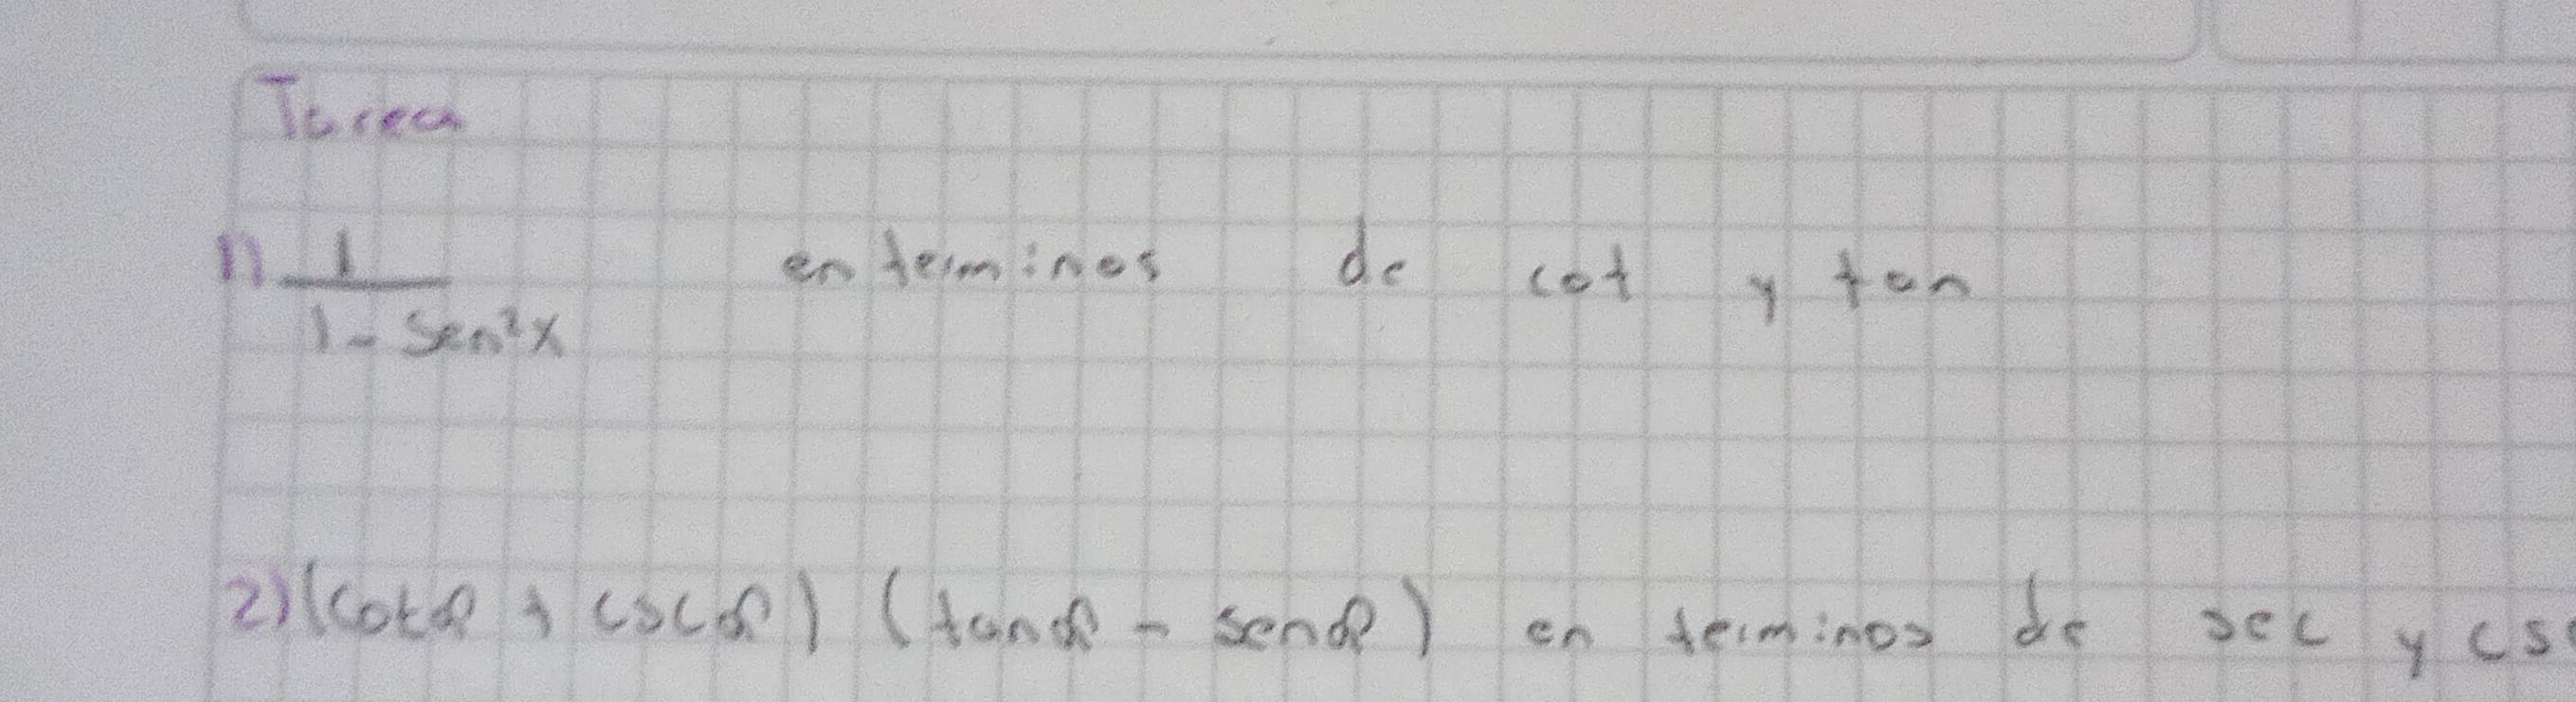 Tarea
1) 1/(1 - Sen²x) en terminos de cot y tan
2) (cotα + cscα) (tanα - senα) en terminos de sec y cs